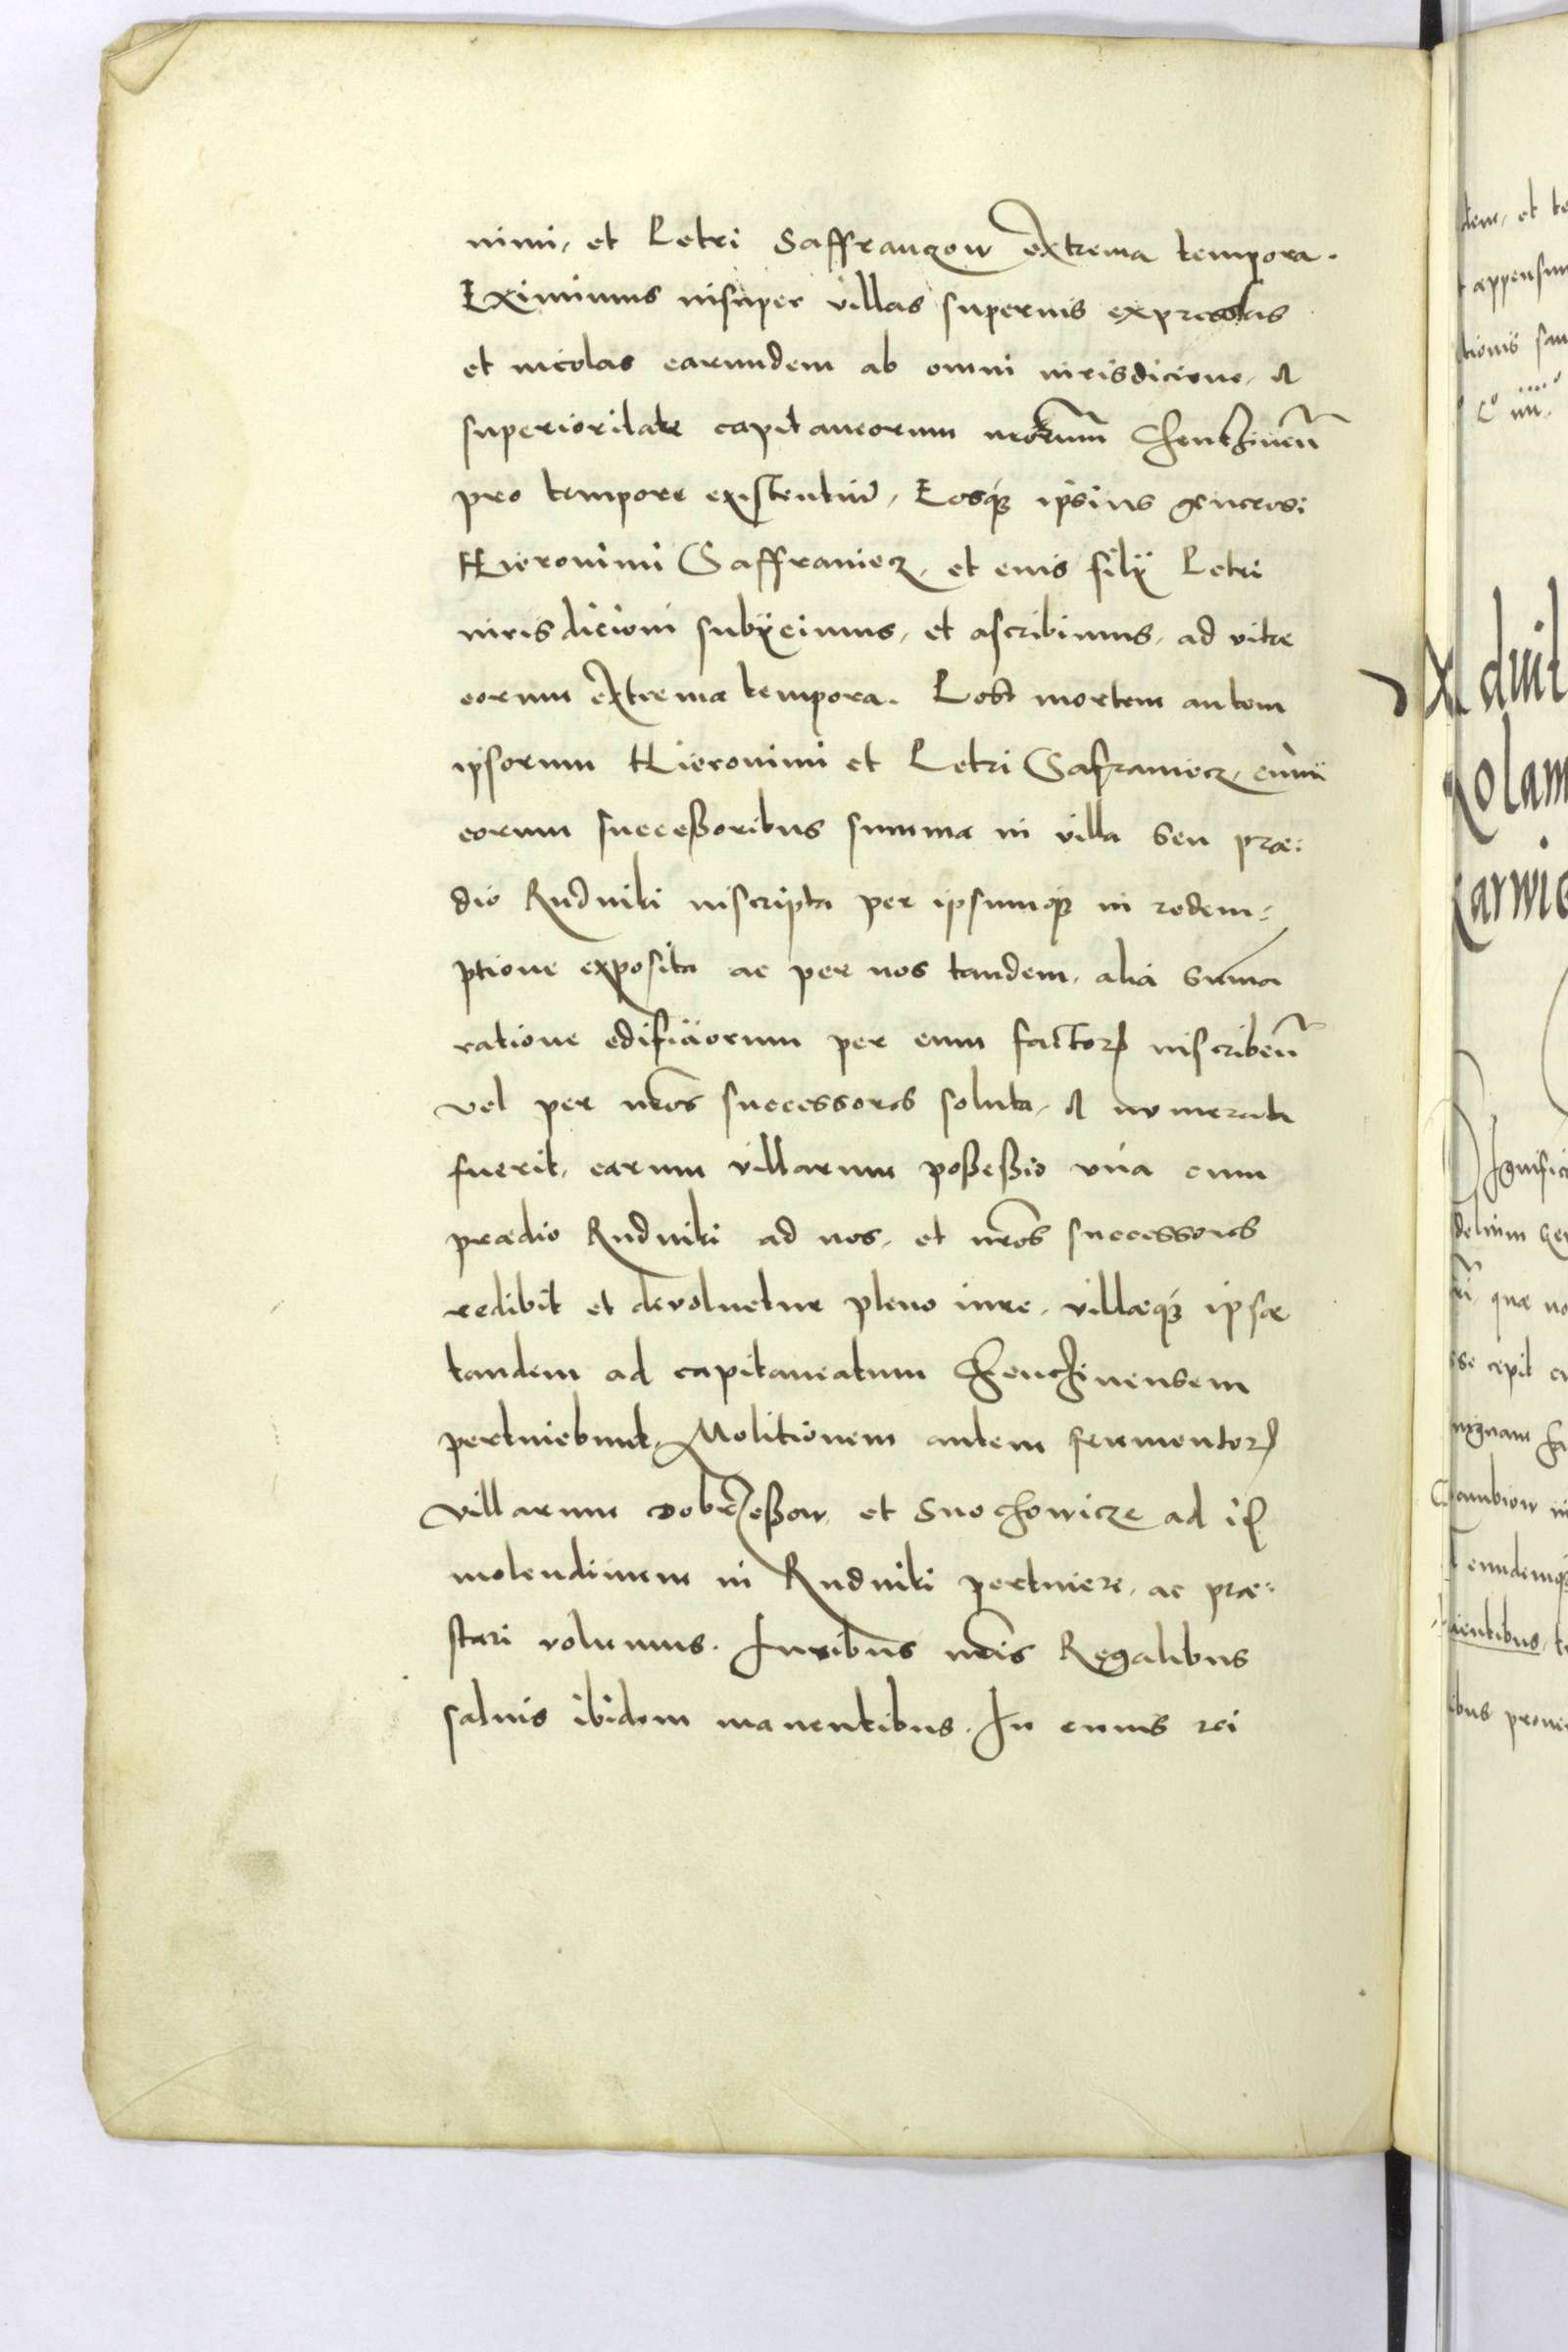 nimi, et Petri Saffranyow extrema tempora.
Eximimus insuper villas superius expressas
et incolas earundem ab omni iurisdicione, et
superioritate capitaneorum nrorum Chenczinen̄
pro tempore existentiū, Eosq́ꝫ ipsius generosi
Hieronimi Saffraniecz, et eius filij Petri
iurisdicioni subijcimus, et ascribimus, ad vitæ
eorum extrema tempora. Post mortem autem
ipsorum Hieronimi et Petri Safraniecz, cum
eorum successoribus summa in villa seu præ-
dio Rudniki inscripta per ipsumqꝫ in redem-
ptione exposita ac per nos tandem, alia suma
ratione edificiorum per eum factorꝝ inscriben̄
vel per nr̄os successores soluta, et numerata
fuerit, earum villarum possessio vna cum
prædio Rudniki ad nos, et nr̄os successores
redibit et devoluetur pleno iure, villæq́ꝫ ipsæ
tandem ad capitaneatum Chenczinensem
pertinebunt, Molitionem autem frumentorꝝ
villarum Dobrzessow, et Snochowicze ad
molendinum in Rudniki pertinere, ac præ-
stari volumus. Iuribus nr̄is Regalibus
saluis ibidem manentibus. In cuius rei